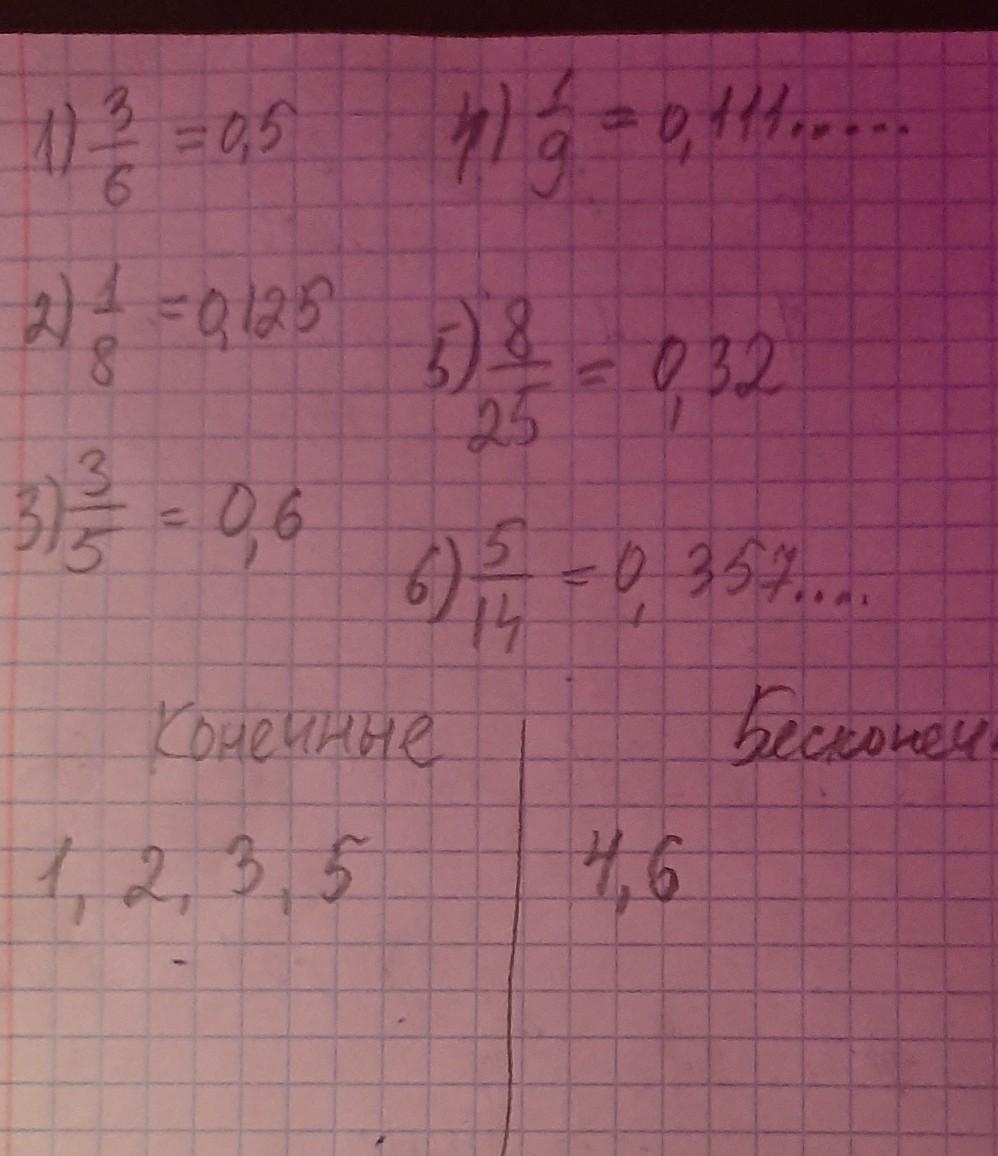 1) 3/6 = 0,5
2) 1/8 = 0,125
3) 3/5 = 0,6
4) 1/9 = 0,111......
5) 8/25 = 0,32
6) 5/14 = 0,357....
Конечные
1, 2, 3, 5
Бесконеч
4, 6